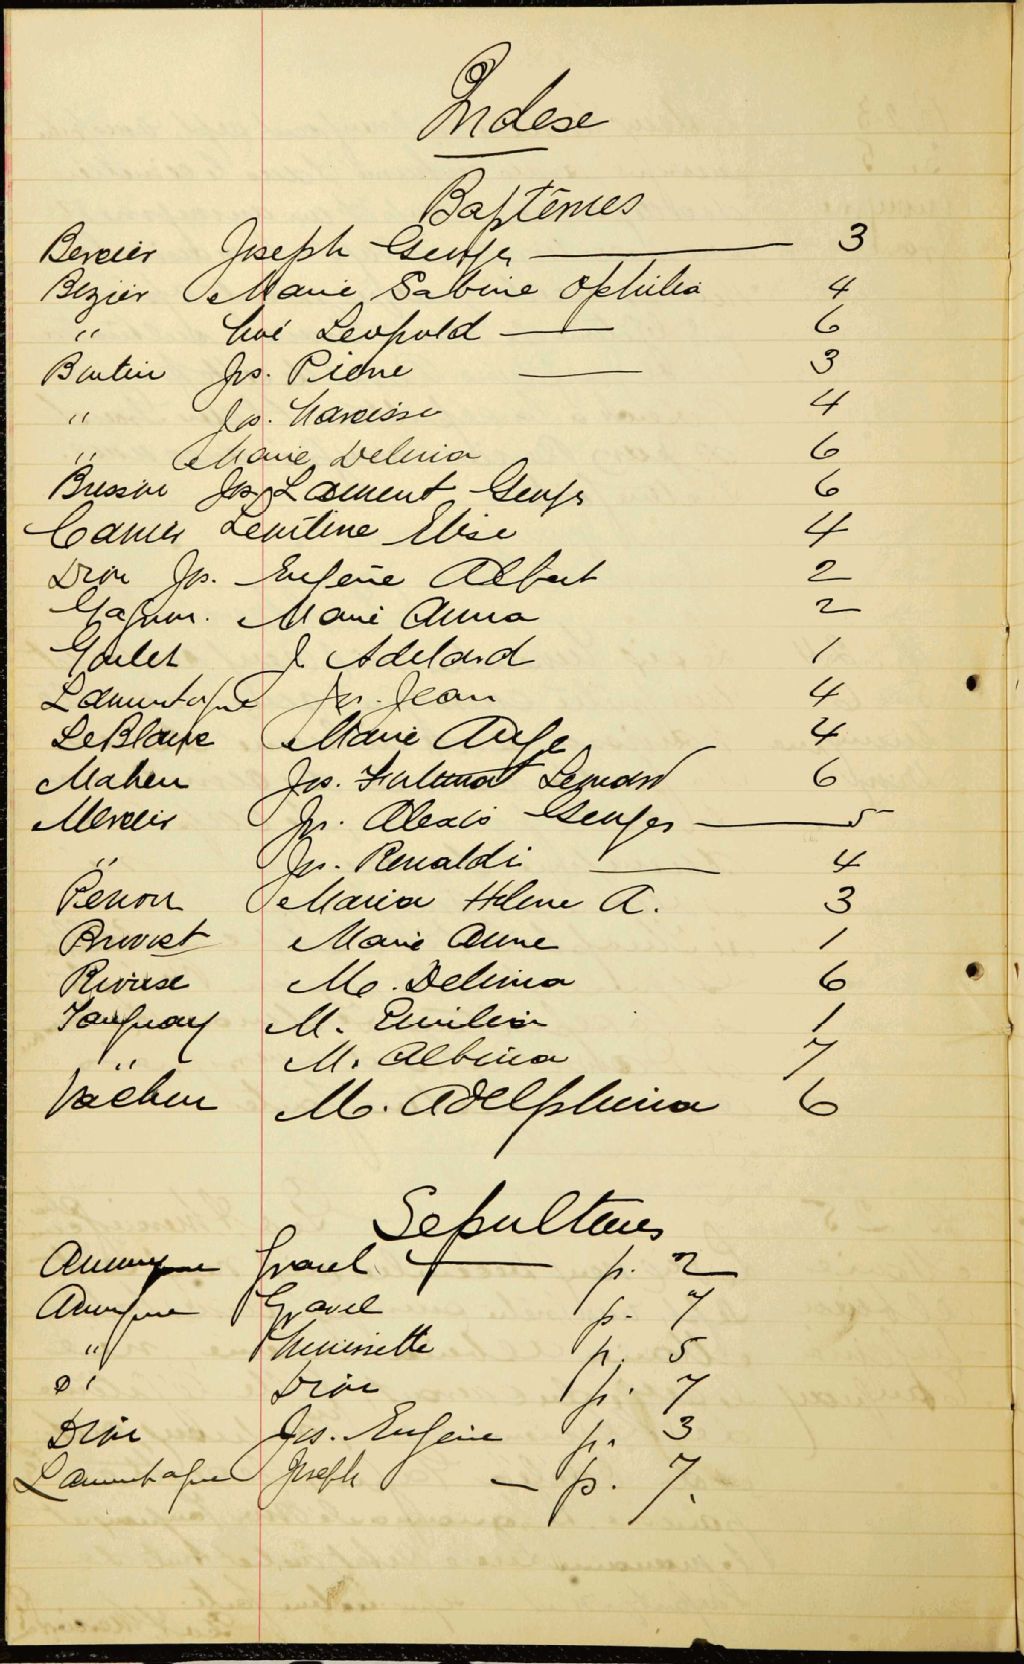 Indese
Baptêmes
Bercier Joseph Georges 3
Bezier Marie Sabine Ophilia 4
" Noé Leopold 6
Boutin Jos. Pierre 3
" Jos. Narcisse 4
" Marie Delmia 6
Bussière Jos. Laurent Georges 6
Camer Leontine Elise 4
Drion Jos. Eugène Albert 2
Gagnon. Marie Anna 2
Goulet J. Adelard 1
Lamontagne Jos. Jean 4
LeBlanc Marie Ange 4
Maheu Jos. Fortunat Leonard 6
Mercier Jos. Alexis Georges 5
" Jos. Renaldi 4
Perron Maria Helene A. 3
Provost Marie Anne 1
Rivisse M. Delima 6
Tanguay M. Emilia 1
" M. Albina 7
Vachon M. Adelphina 6
Sepultures
Anonyme Gravel p. 2
Anonyme Gravel p. 7
" p. 5
" Drion p. 7
Drion Jos. Eugène p. 3
Lamontagne Joseph — p. 7.